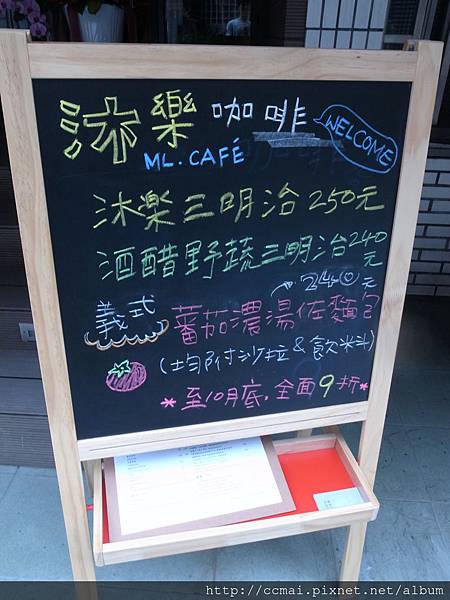 沐樂 咖啡
WELCOME
ML. CAFÉ
沐樂三明治 250元
酒醋野蔬三明治 240元
240元
義式 蕃茄濃湯佐麵包
(均附沙拉 & 飲料)
*至10月底.全面9折*
http://ccmai.pixnet.net/album